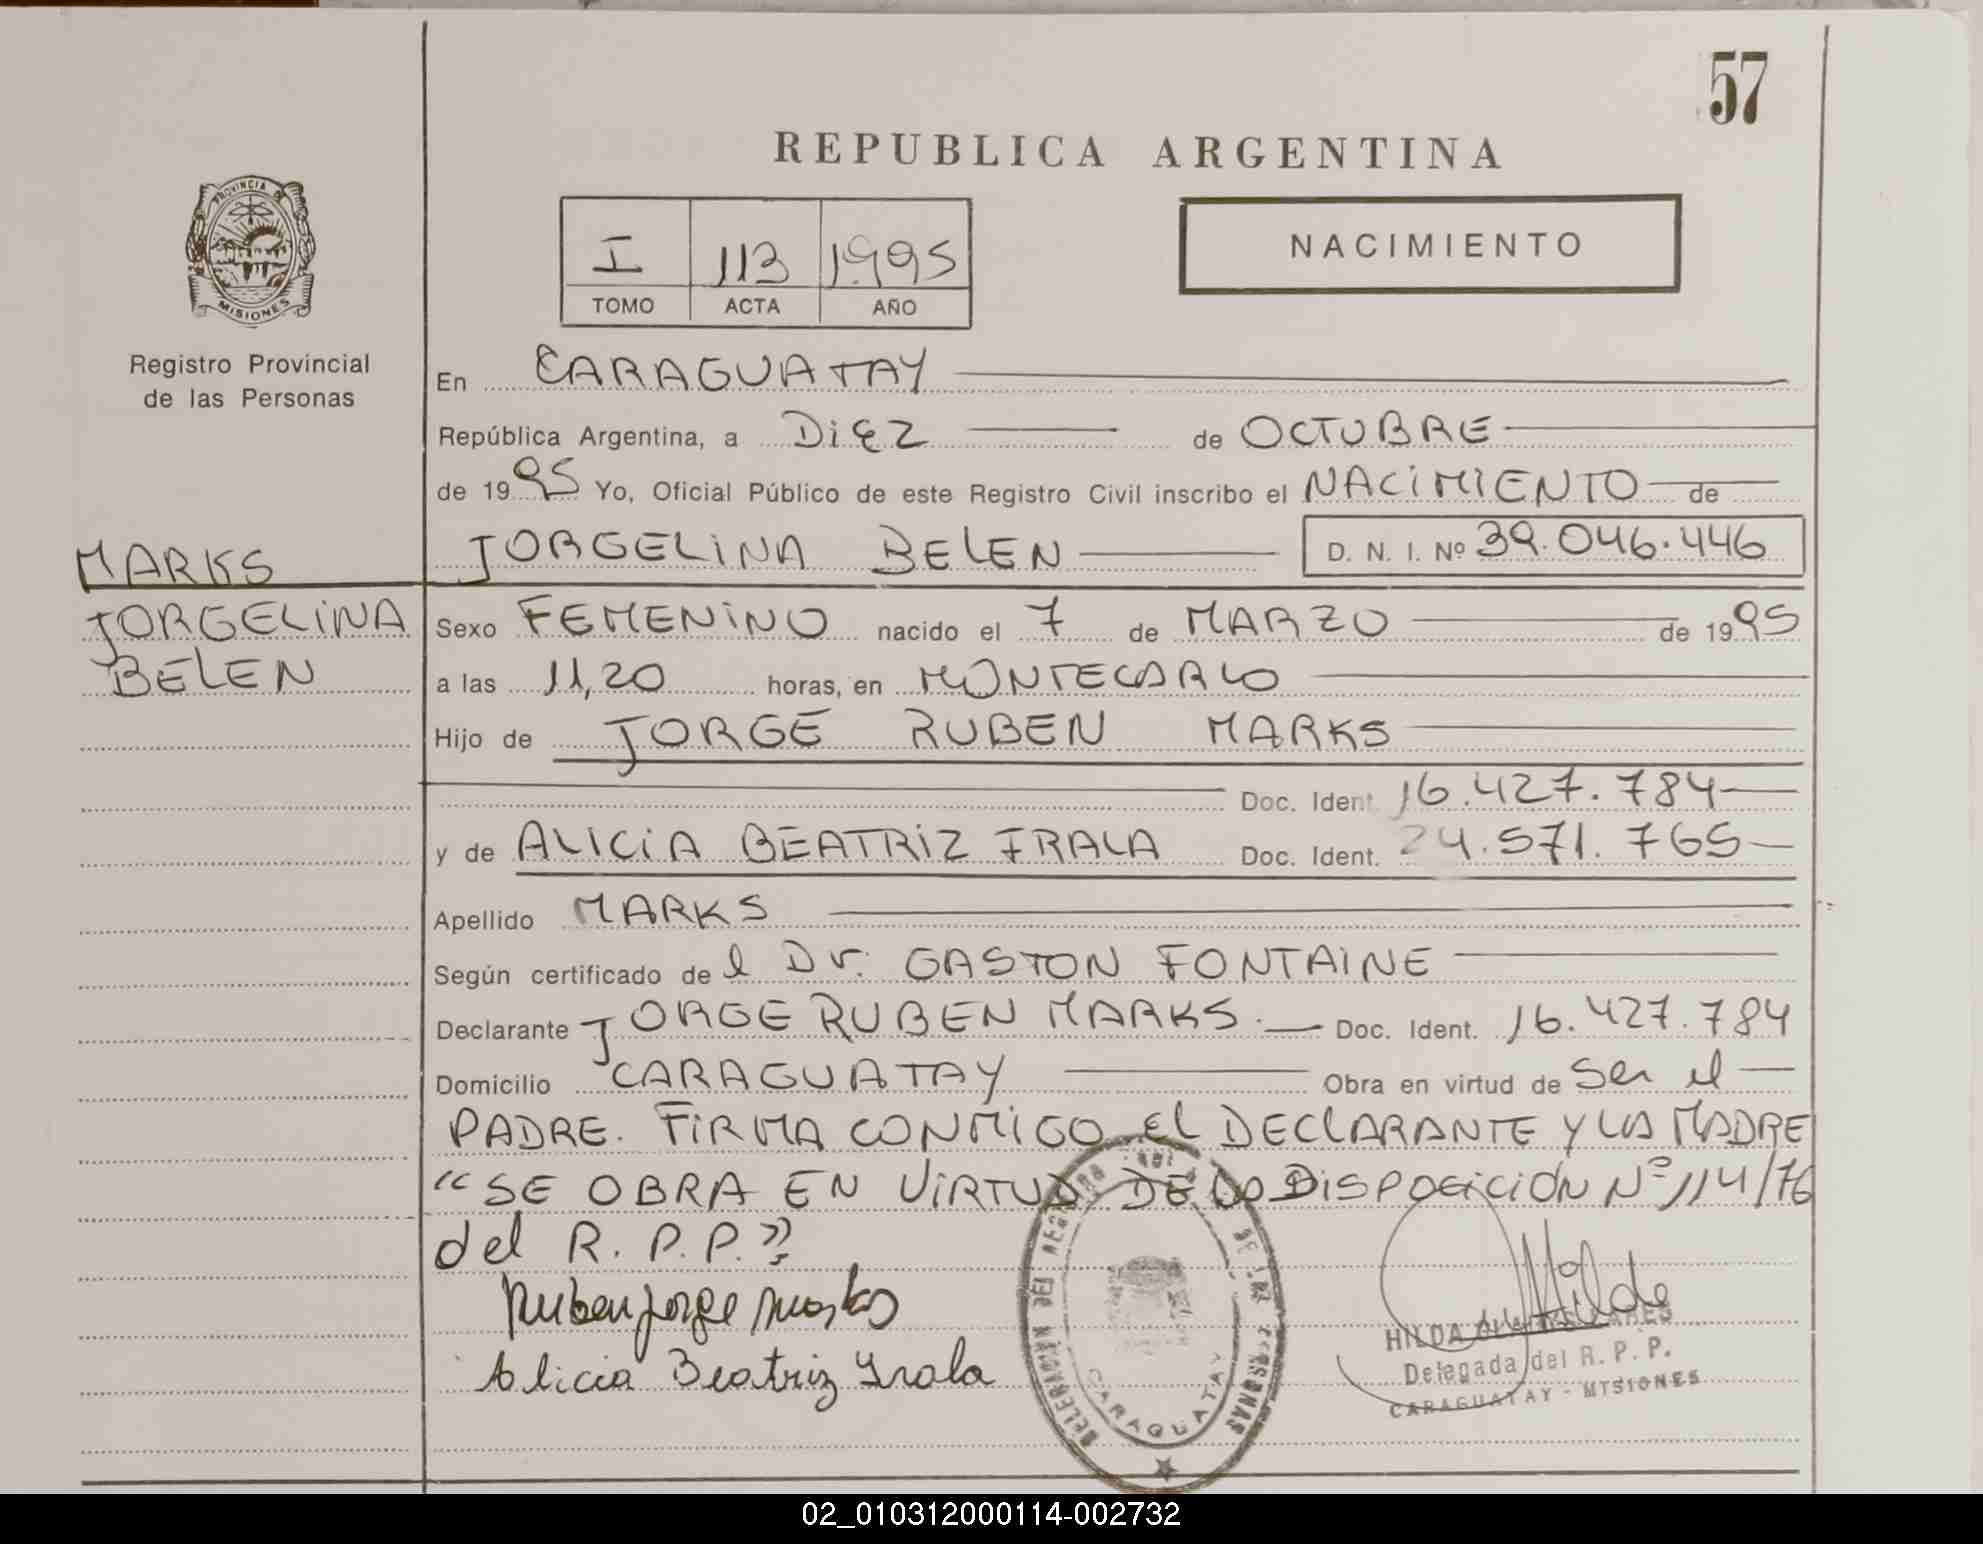 57
REPUBLICA ARGENTINA
PROVINCIA DE
MISIONES
Registro Provincial
de las Personas
I 113 1.995
TOMO ACTA AÑO
NACIMIENTO
En CARAGUATAY
República Argentina, a DiEZ de OCTUBRE
de 1995 Yo, Oficial Público de este Registro Civil inscribo el NACiMIENTO de
JORGELiNA BELEN D. N. I. Nº 39.046.446
MARKS
JORGELiNA
BELEN
Sexo FEMENiNO nacido el 7 de MARZO de 1995
a las 11,20 horas, en MONTECARLO
Hijo de JORGE RUBEN MARKS
Doc. Ident 16.427.784
y de ALICiA BEATRiZ IRALA Doc. Ident. 24.571.765
Apellido MARKS
Según certificado de l Dr. GASTON FONTAINE
Declarante JORGE RUBEN MARKS. Doc. Ident. 16.427.784
Domicilio CARAGUATAY Obra en virtud de Ser el
PADRE. FiRMA CONMiGO EL DECLARANTE Y LA MADRE
"SE OBRA EN ViRTUD DE LA DiSPOSICiÓN Nº 114/76
del R. P. P."
Ruben Jorge Marks
Alicia Beatriz Irala
CARAGUATAY
Hilda
HILDA
Delegada del R. P. P.
CARAGUATAY - MISIONES
02_010312000114-002732